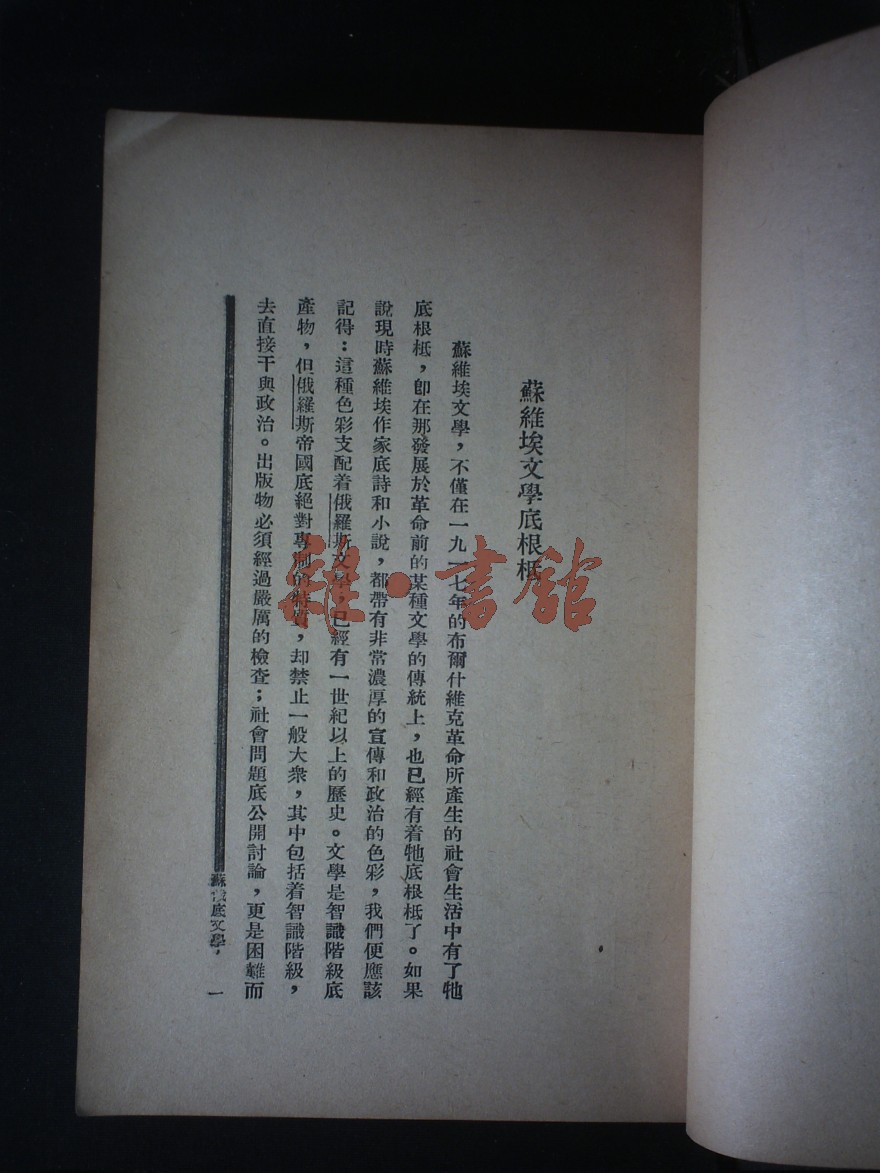 蘇維埃文學底根柢
蘇維埃文學，不僅在一九一七年的布爾什維克革命所產生的社會生活中有了牠
底根柢，卽在那發展於革命前的某種文學的傳統上，也已經有着牠底根柢了。如果
說現時蘇維埃作家底詩和小說，都帶有非常濃厚的宣傳和政治的色彩，我們便應該
記得：這種色彩支配着俄羅斯文學，已經有一世紀以上的歷史。文學是智識階級底
產物，但俄羅斯帝國底絕對專制的特質，却禁止一般大衆，其中包括着智識階級，
去直接干與政治。出版物必須經過嚴厲的檢查；社會問題底公開討論，更是困難而
蘇俄底文學，
一
雜·書館